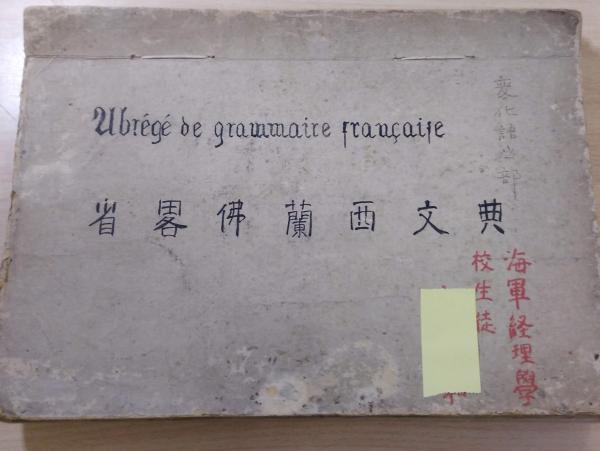 Abrégé de grammaire française
変化語之部
省畧佛蘭西文典
海軍経理學
校生徒